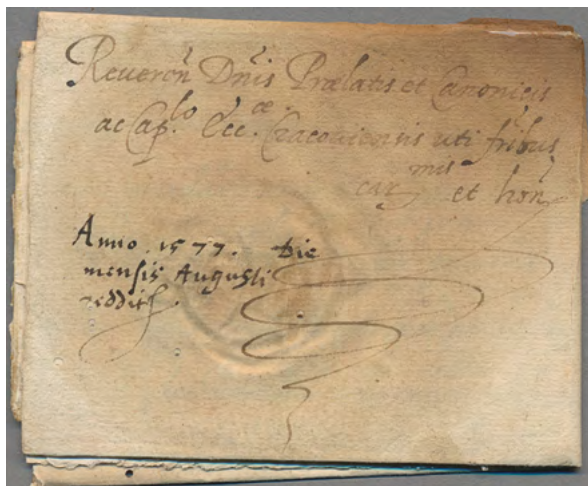 Reueren̄ Dn̄is Prælatis et Canonicis
ac Cap.lo Ecc.æ Cracouiensis uti fr̄ibus
carmis et hon
Anno . 1577. Die
mensis Augusti
reddit